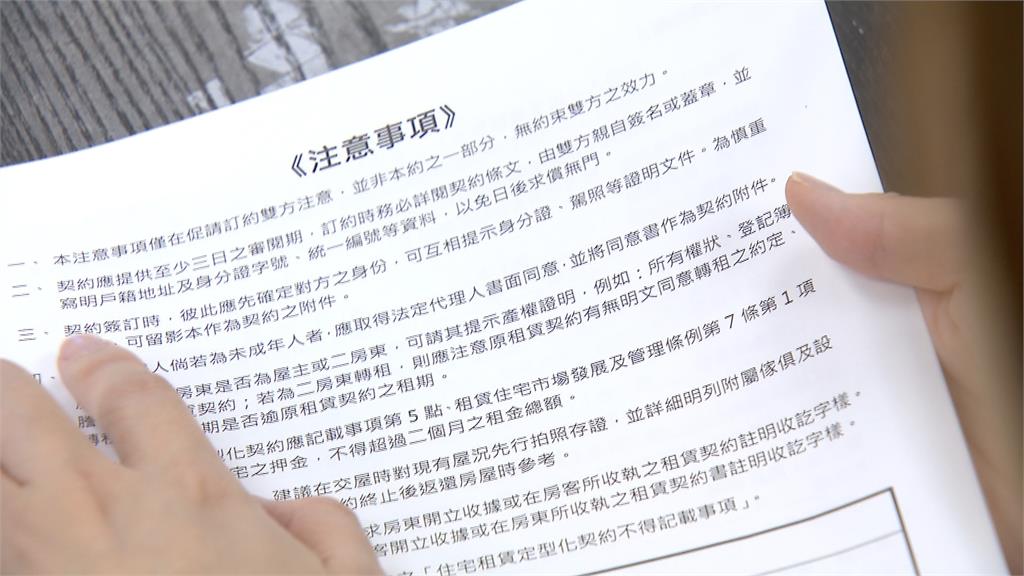 《注意事項》
一、本注意事項僅在促請訂約雙方注意，並非本約之一部分，無約束雙方之效力。
二、契約應提供至少三日之審閱期，訂約時務必詳閱契約條文，由雙方親自簽名或蓋章，並
寫明戶籍地址及身分證字號、統一編號等資料，以免日後求償無門。
三、契約簽訂時，彼此應先確定對方之身份，可互相提示身分證、駕照等證明文件。為慎重
可留影本作為契約之附件。
人倘若為未成年人者，應取得法定代理人書面同意，並將同意書作為契約附件。
房東是否為屋主或二房東，可請其提示產權證明，例如：所有權狀、登記簿
契約；若為二房東轉租，則應注意原租賃契約有無明文同意轉租之約定、
期是否逾原租賃契約之租期。
化契約應記載事項第5點、租賃住宅市場發展及管理條例第7條第1項
宅之押金，不得超過二個月之租金總額。
建議在交屋時對現有屋況先行拍照存證，並詳細明列附屬傢俱及設
約終止後返還房屋時參考。
求房東開立收據或在房客所收執之租賃契約註明收訖字樣。
客開立收據或在房東所收執之租賃契約書註明收訖字樣。
之「住宅租賃定型化契約不得記載事項」。